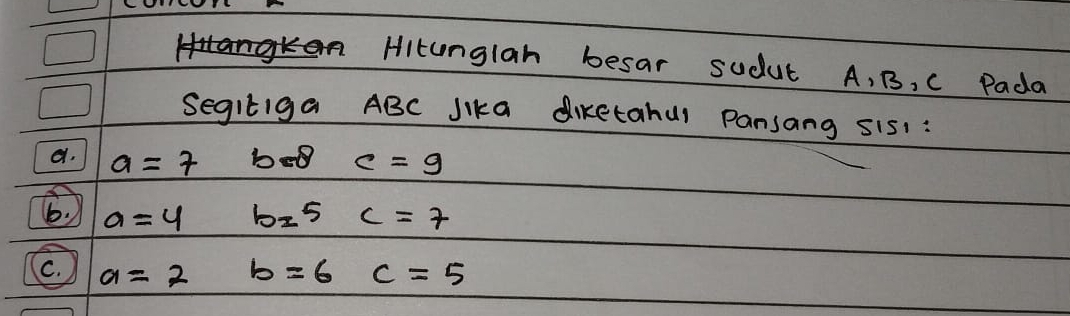 Hitunglah besar sudut A, B, C pada
Segitiga ABC Jika diketahui Pansang sisi :
a. a = 7 b=8 c = 9
b. a = 4 b=5 c = 7
c. a = 2 b = 6 c = 5